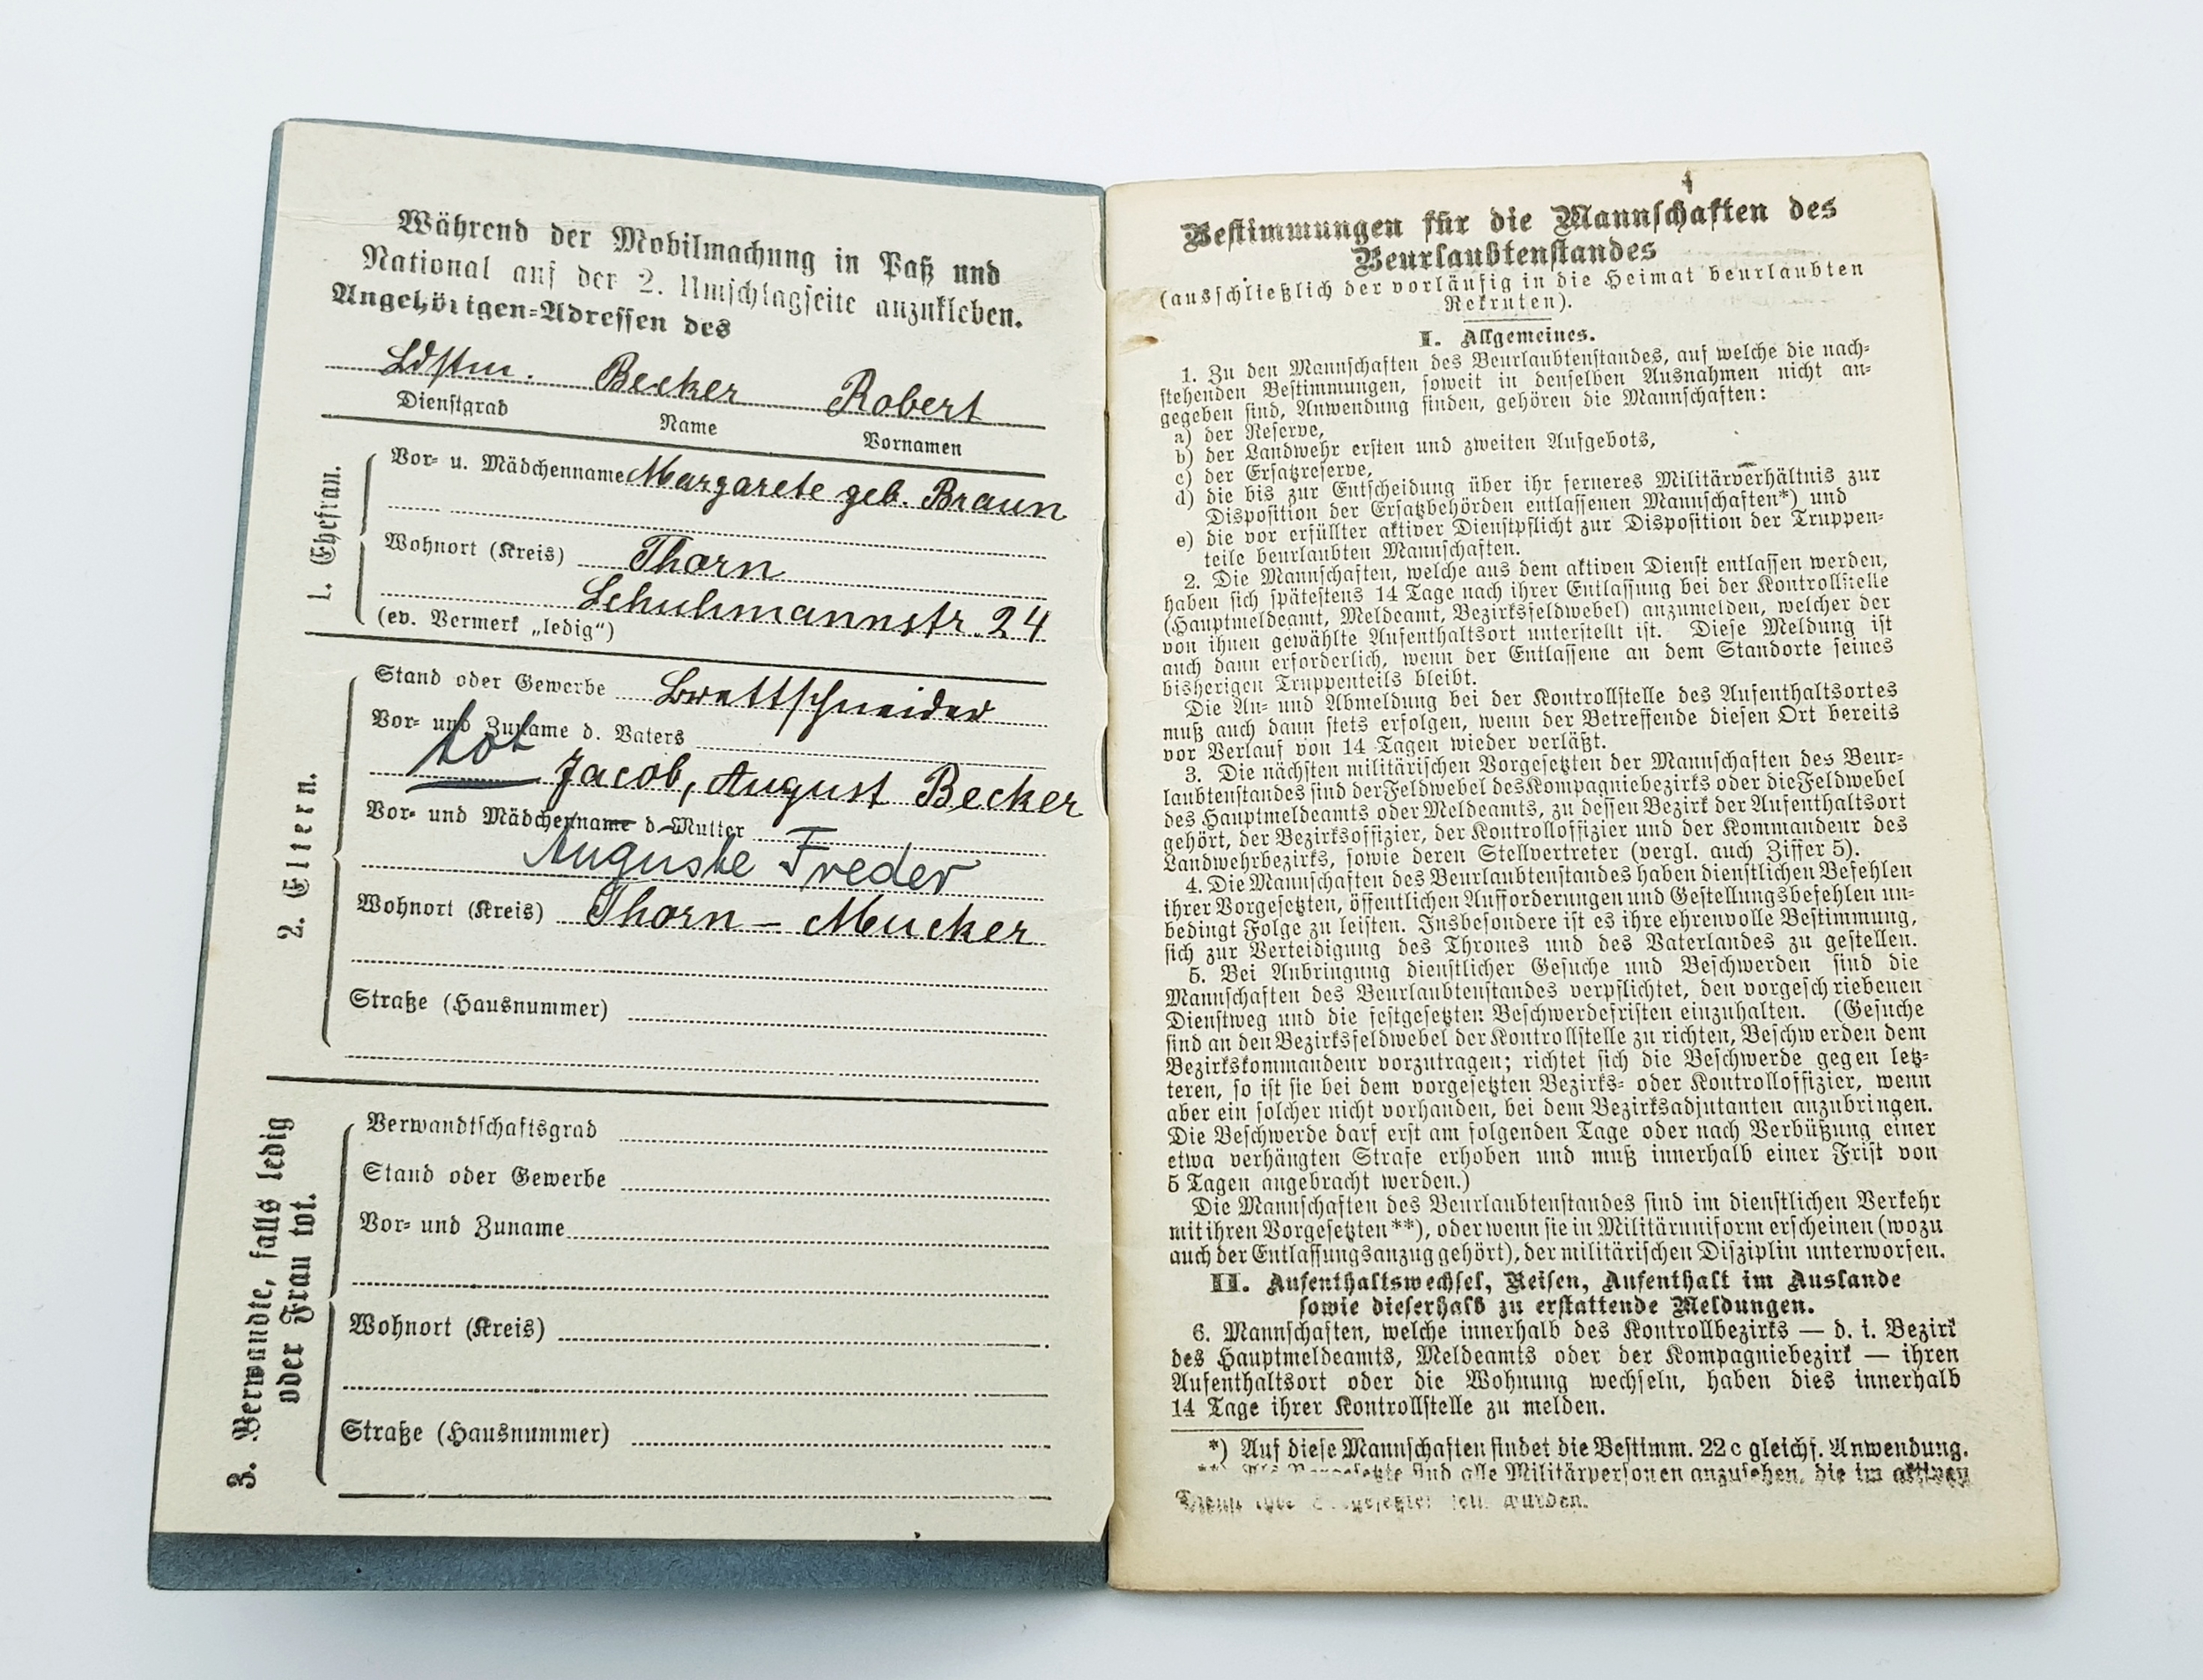 Während der Mobilmachung in Paß und
National auf der 2. Umschlagseite anzukleben.
Angehörigen-Adressen des
Ldstm. Becker Robert
Dienstgrad Name Vornamen
1. Ehefrau.
Vor- u. Mädchenname Margarete geb. Braun
Wohnort (Kreis) Thorn
Schuhmannstr. 24
(ev. Vermerk „ledig“)
2. Eltern.
Stand oder Gewerbe Brettschneider
Vor- und Zuname d. Vaters
tot Jacob, August Becker
Vor- und Mädchenname d. Mutter
Auguste Freder
Wohnort (Kreis) Thorn – Mucker
Straße (Hausnummer)
3. Verwandte, falls ledig
oder Frau tot.
Verwandtschaftsgrad
Stand oder Gewerbe
Vor- und Zuname
Wohnort (Kreis)
Straße (Hausnummer)
Bestimmungen für die Mannschaften des
Beurlaubtenstandes
(ausschließlich der vorläufig in die Heimat beurlaubten
Rekruten).
I. Allgemeines.
1. Zu den Mannschaften des Beurlaubtenstandes, auf welche die nach-
stehenden Bestimmungen, soweit in denselben Ausnahmen nicht an-
gegeben sind, Anwendung finden, gehören die Mannschaften:
a) der Reserve,
b) der Landwehr ersten und zweiten Aufgebots,
c) der Ersatzreserve,
d) die bis zur Entscheidung über ihr ferneres Militärverhältnis zur
Disposition der Ersatzbehörden entlassenen Mannschaften*) und
e) die vor erfüllter aktiver Dienstpflicht zur Disposition der Truppen-
teile beurlaubten Mannschaften.
2. Die Mannschaften, welche aus dem aktiven Dienst entlassen werden,
haben sich spätestens 14 Tage nach ihrer Entlassung bei der Kontrollstelle
(Hauptmeldeamt, Meldeamt, Bezirksfeldwebel) anzumelden, welcher der
von ihnen gewählte Aufenthaltsort unterstellt ist. Diese Meldung ist
auch dann erforderlich, wenn der Entlassene an dem Standorte seines
bisherigen Truppenteils bleibt.
Die An- und Abmeldung bei der Kontrollstelle des Aufenthaltsortes
muß auch dann stets erfolgen, wenn der Betreffende diesen Ort bereits
vor Verlauf von 14 Tagen wieder verläßt.
3. Die nächsten militärischen Vorgesetzten der Mannschaften des Beur-
laubtenstandes sind der Feldwebel des Kompagniebezirks oder die Feldwebel
des Hauptmeldeamts oder Meldeamts, zu dessen Bezirk der Aufenthaltsort
gehört, der Bezirksoffizier, der Kontrolloffizier und der Kommandeur des
Landwehrbezirks, sowie deren Stellvertreter (vergl. auch Ziffer 5).
4. Die Mannschaften des Beurlaubtenstandes haben dienstlichen Befehlen
ihrer Vorgesetzten, öffentlichen Aufforderungen und Gestellungsbefehlen un-
bedingt Folge zu leisten. Insbesondere ist es ihre ehrenvolle Bestimmung,
sich zur Verteidigung des Thrones und des Vaterlandes zu gestellen.
5. Bei Anbringung dienstlicher Gesuche und Beschwerden sind die
Mannschaften des Beurlaubtenstandes verpflichtet, den vorgeschriebenen
Dienstweg und die festgesetzten Beschwerdefristen einzuhalten. (Gesuche
sind an den Bezirksfeldwebel der Kontrollstelle zu richten, Beschwerden dem
Bezirkskommandeur vorzutragen; richtet sich die Beschwerde gegen letz-
teren, so ist sie bei dem vorgesetzten Bezirks- oder Kontrolloffizier, wenn
aber ein solcher nicht vorhanden, bei dem Bezirksadjutanten anzubringen.
Die Beschwerde darf erst am folgenden Tage oder nach Verbüßung einer
etwa verhängten Strafe erhoben und muß innerhalb einer Frist von
5 Tagen angebracht werden.)
Die Mannschaften des Beurlaubtenstandes sind im dienstlichen Verkehr
mit ihren Vorgesetzten**), oder wenn sie in Militäruniform erscheinen (wozu
auch der Entlassungsanzug gehört), der militärischen Disziplin unterworfen.
II. Aufenthaltswechsel, Reisen, Aufenthalt im Auslande
sowie dieserhalb zu erstattende Meldungen.
6. Mannschaften, welche innerhalb des Kontrollbezirks — d. i. Bezirk
des Hauptmeldeamts, Meldeamts oder der Kompagniebezirk — ihren
Aufenthaltsort oder die Wohnung wechseln, haben dies innerhalb
14 Tage ihrer Kontrollstelle zu melden.
*) Auf diese Mannschaften findet die Bestimm. 22 c gleichf. Anwendung.
**) Als Vorgesetzte sind alle Militärpersonen anzusehen, die im aktiven
würden.